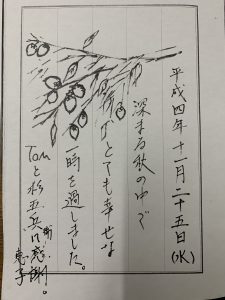 平成四年十一月二十五日(水)
深まる秋の中で
とても幸せな
一時を過しました。
Tomと杉五兵ヱ
感謝。
恵子